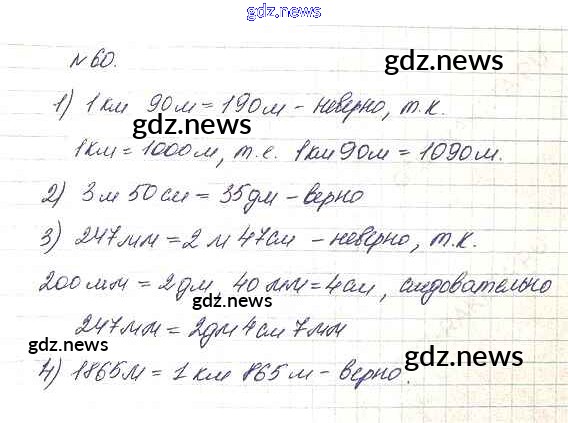 gdz.news
№ 60.
gdz.news
1) 1 км 90 м = 190 м - неверно, т.к.
gdz.news
1 км = 1000 м, т.е. 1 км 90 м = 1090 м.
2) 3 м 50 см = 35 дм - верно
3) 247 мм = 2 м 47 см - неверно, т.к.
200 мм = 2 дм, 40 мм = 4 см, следовательно
gdz.news
247 мм = 2 дм 4 см 7 мм
gdz.news
gdz.news
4) 1865 м = 1 км 865 м - верно.